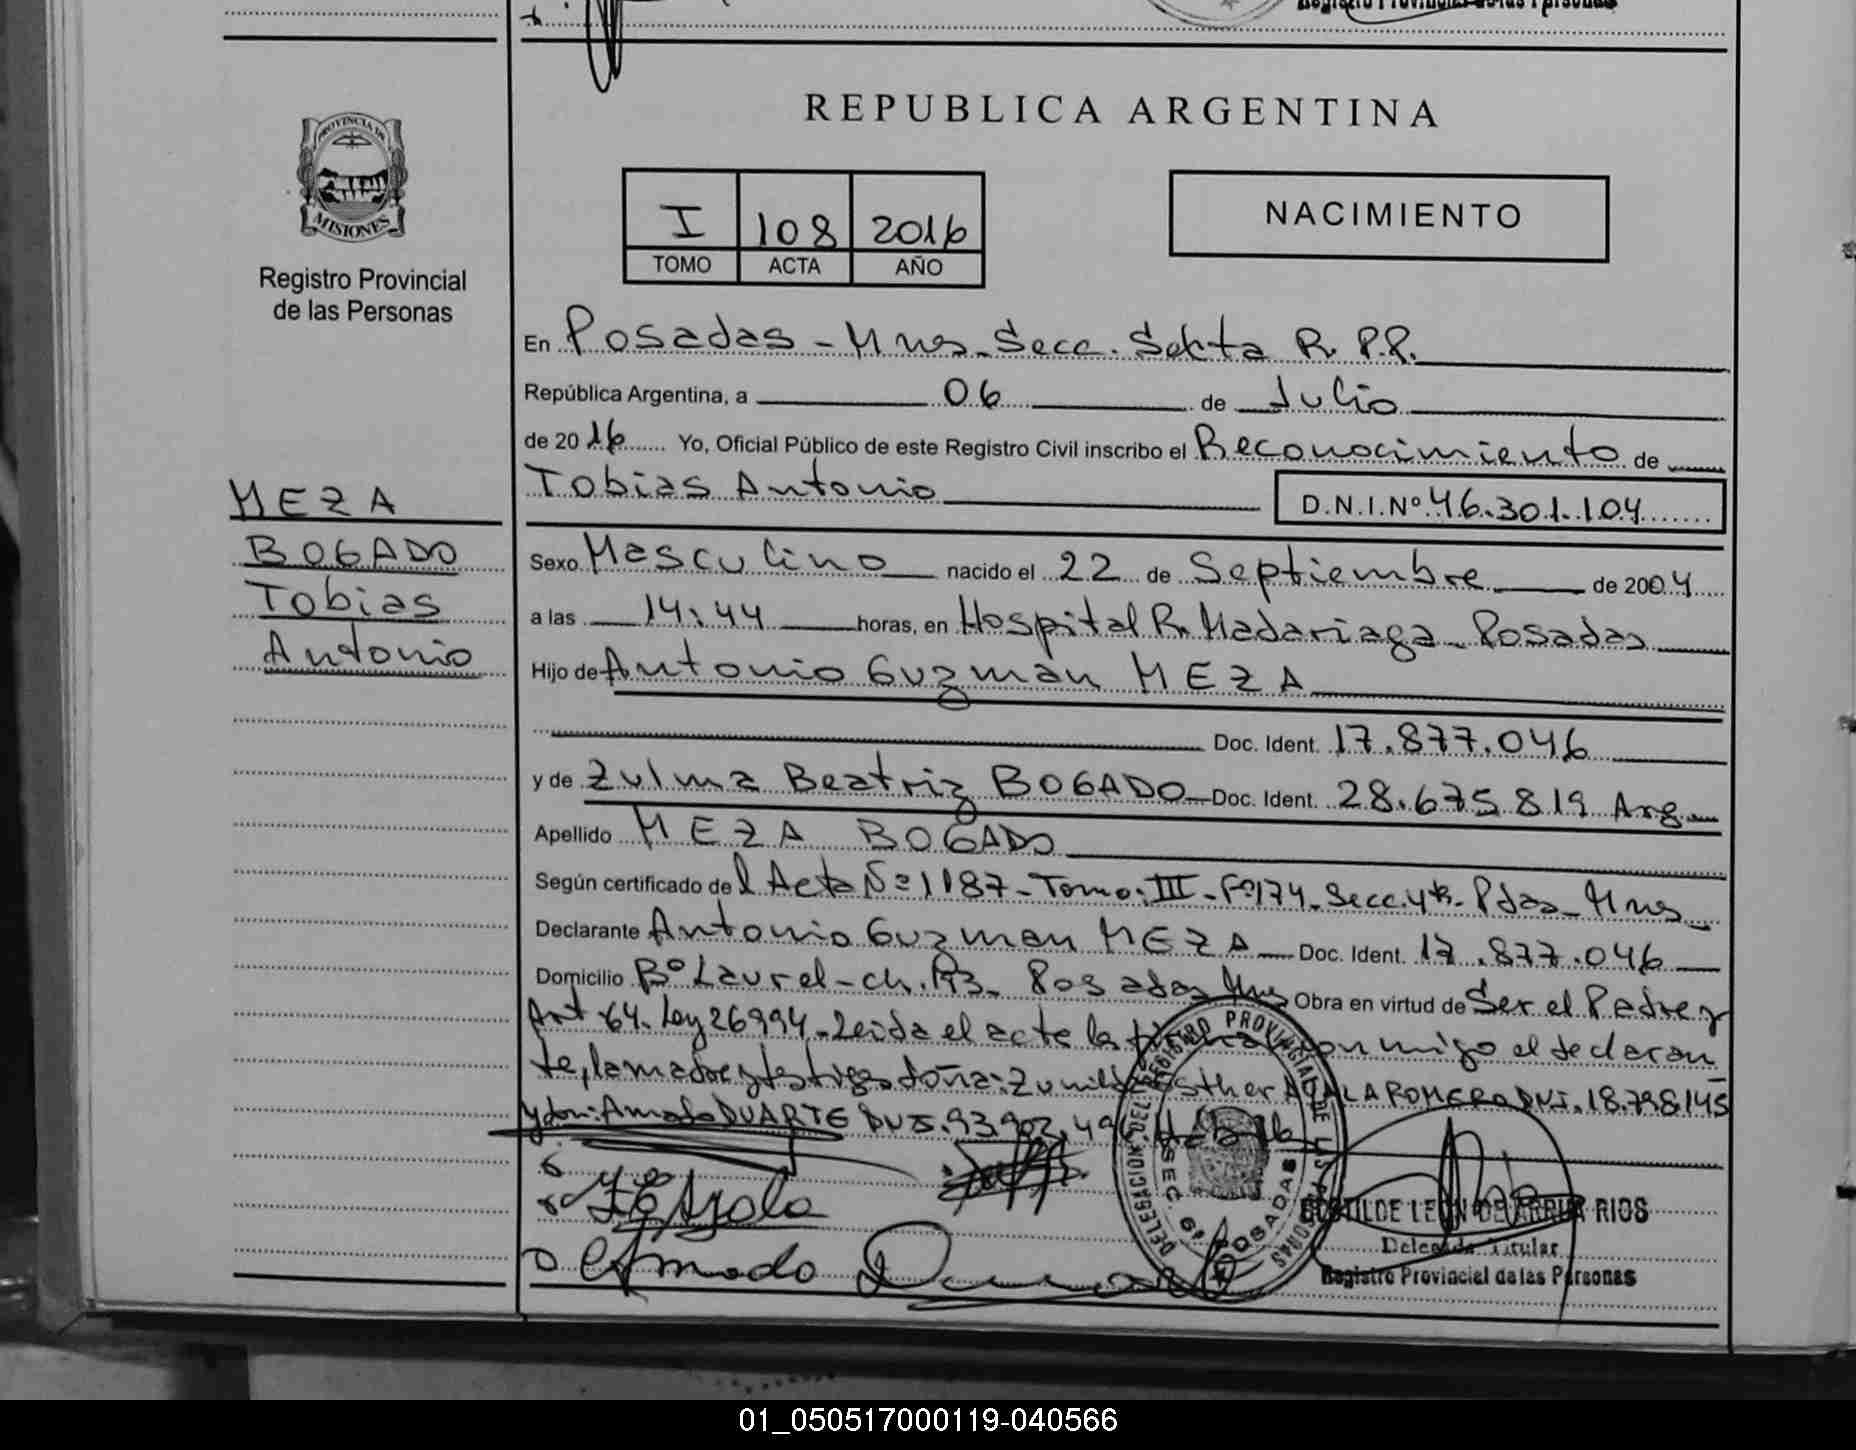 Registro Provincial de las Personas
REPUBLICA ARGENTINA
PROVINCIA DE
MISIONES
Registro Provincial
de las Personas
I 108 2016
TOMO ACTA AÑO
NACIMIENTO
En Posadas - Mnes. Secc. Sekta R. P.P.
República Argentina, a 06 de Julio
de 2016 Yo, Oficial Público de este Registro Civil inscribo el Reconocimiento de
Tobias Antonio D.N.I.Nº 46.301.104
MEZA
BOGADO
Tobias
Antonio
Sexo Masculino nacido el 22 de Septiembre de 2004
a las 14:44 horas, en Hospital R. Madariaga - Posadas
Hijo de Antonio Guzman MEZA
Doc. Ident. 17.877.046
y de Zulma Beatriz BOGADO Doc. Ident. 28.675.819 Arg.
Apellido MEZA BOGADO
Según certificado del Acta Nº 1187 - Tomo: III - Fº 174 - Secc. 4ta - Pdas - Mnes
Declarante Antonio Guzman MEZA Doc. Ident. 17.877.046
Domicilio Bº Laurel - ch. 193 - Posadas Mnes Obra en virtud de Ser el Padre y
Art 64. Ley 26994 - Leida el acta la firma conmigo el declaran
te, la madre y testigos doña: Zunilda Esther AYALA ROMERO DNI. 18.798.145
y don: Amado DUARTE DNI. 93.902.49
Amado
DELEGACION DEL REGISTRO PROVINCIAL DE LAS PERSONAS
SEC. 6ª POSADAS
CLOTILDE LEON DE ARRUA RIOS
Delegada Titular
Registro Provincial de las Personas
01_050517000119-040566